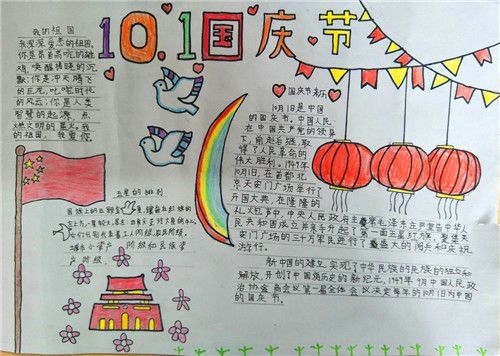 10.1国庆节
我的祖国
我深深爱恋的祖国。
你是昂首高吭的雄
鸡,唤醒拂晓的沉
默,你是冲天腾飞
的巨龙,叱咤时代
的风云,你是人类
智慧的起源,点
燃文明的星火。我
的祖国,我爱你
国庆节来历
10月1日是中国
的国庆节,中国人民
在中国共产党的领导
下,前赴后继,取
得了人民革命的
伟大胜利。1949年
10月1日,在首都北
京天安门广场举行了
开国大典,在隆隆的
礼炮声中,中央人民政府主席毛泽东庄严宣告中华人
民共和国成立并亲手升起了第一面五星红旗。聚集天
安门广场的三十万军民进行了盛大的阅兵和庆祝
游行。
新中国的建立,实现了中华民族的民族的独立和
解放,开创了中国历史的新纪元,1949年9月中国人民政
治协会商会议第一届全体会议决定每年的10月1日为中国
的国庆节。
五星的排列
国旗上的五颗
级、城市小资产阶级和民族资
产阶级